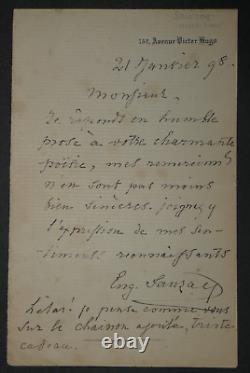 152, Avenue Victor Hugo
21 Janvier 98.
Monsieur,
Je réponds en humble
prose à votre charmante
poésie, mes remerciments
n'en sont pas moins
bien sincères. joignez y
l'expression de mes sen-
timents reconnaissants
Eng.
je pense comme vous
sur le chainon ajouté, triste
cadeau.
www.picclick.com